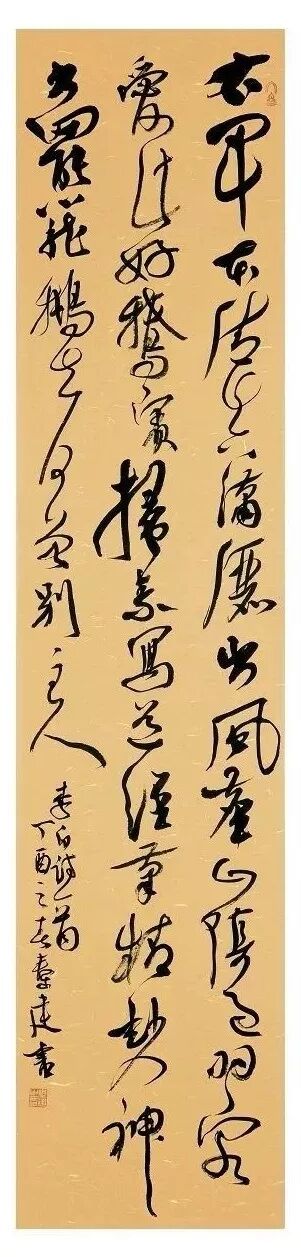 右軍本清真瀟灑出風塵山陰過羽客
愛此好鵝賓掃素寫道經筆精妙入神
書罷籠鵝去何曾別主人
李白詩一首
丁酉之春 建書